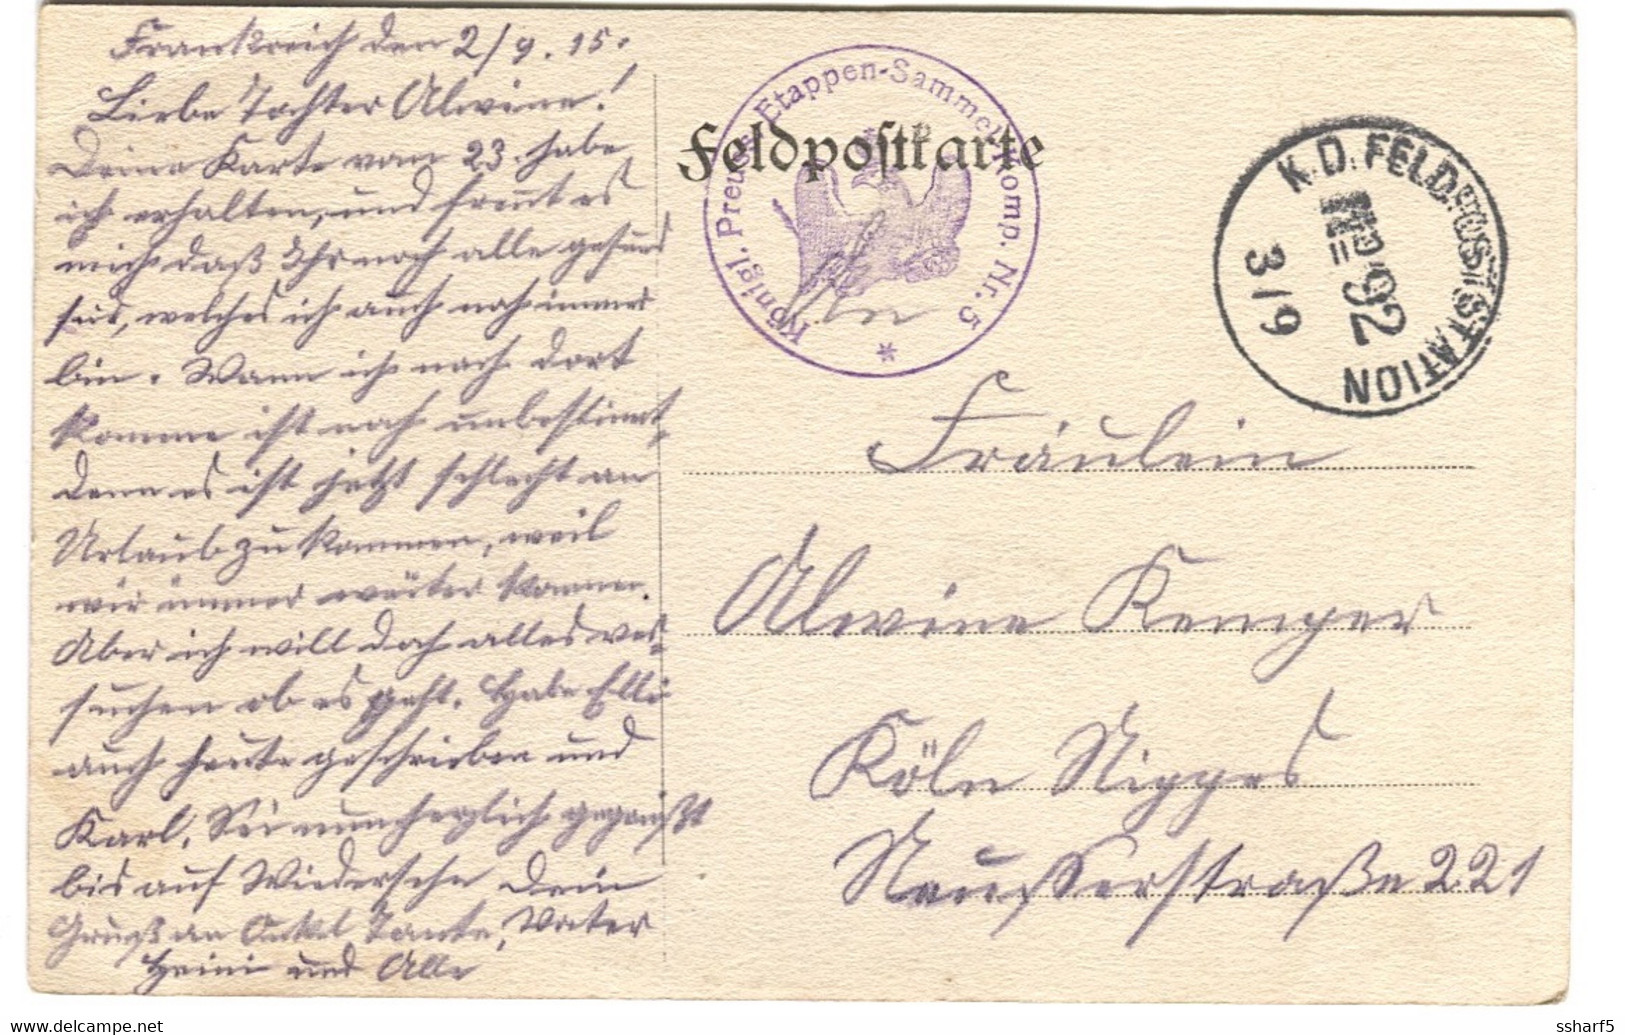 Frankreich den 2/9.15.
Liebe Tochter Alwine!
Deine Karte vom 23. habe
ich erhalten, und freut es
mich daß Ihr noch alle gesund
seid, welches ich auch noch immer
bin. Wann ich nach dort
komme ist noch unbestimmt,
denn es ist jetzt schlecht an
Urlaub zu kommen, weil
wir immer weiter kommen.
Aber ich will doch alles ver-
suchen ob es geht. Habe Elli
auch heute geschrieben und
Karl. Sei nun herzlich gegrüßt
bis auf Wiedersehn Dein
Gruß an Onkel Tante, Vater
Heini und Alle
Feldpostkarte
Königl. Preuss. Etappen-Sammel-Komp. Nr. 5
K.D. FELDPOSTSTATION
No 92
3/9
Fräulein
Alwine Kemper
Köln Nippes
Neußerstraße 221
ssharf5